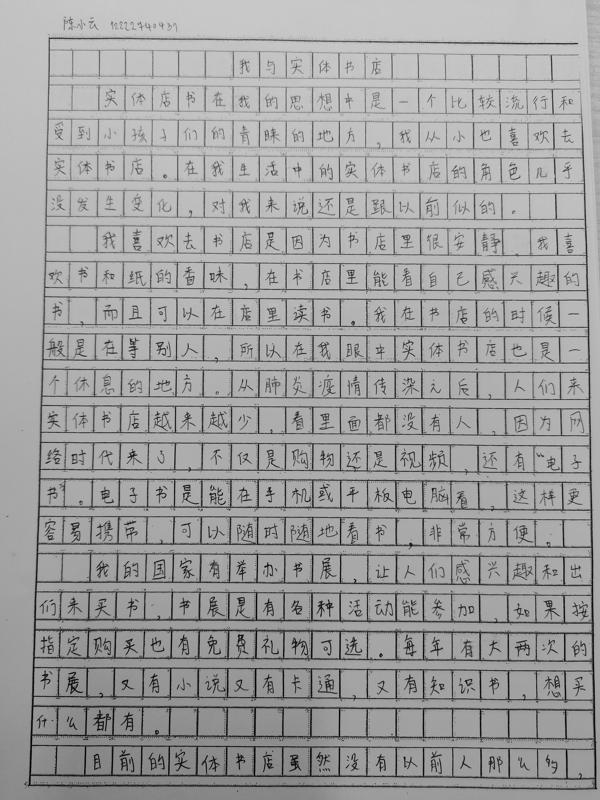 陈小云 12222740439
我与实体书店
实体店书在我的思想中是一个比较流行和
受到小孩子们的青睐的地方，我从小也喜欢去
实体书店。在我生活中的实体书店的角色几乎
没发生变化，对我来说还是跟以前似的。
我喜欢去书店是因为书店里很安静。我喜
欢书和纸的香味，在书店里能看自己感兴趣的
书，而且可以在店里读书。我在书店的时候一
般是在等别人，所以在我眼中实体书店也是一
个休息的地方。从肺炎疫情传染之后，人们来
实体书店越来越少，看里面都没有人，因为网
络时代来了，不仅是购物还是视频，还有“电子
书”。电子书是能在手机或平板电脑看，这样更
容易携带，可以随时随地看书，非常方便。
我的国家有举办书展，让人们感兴趣和出
们来买书，书展是有各种活动能参加，如果按
指定购买也有免费礼物可选。每年有大两次的
书展，又有小说又有卡通，又有知识书，想买
什么都有。
目前的实体书店虽然没有以前人那么多，